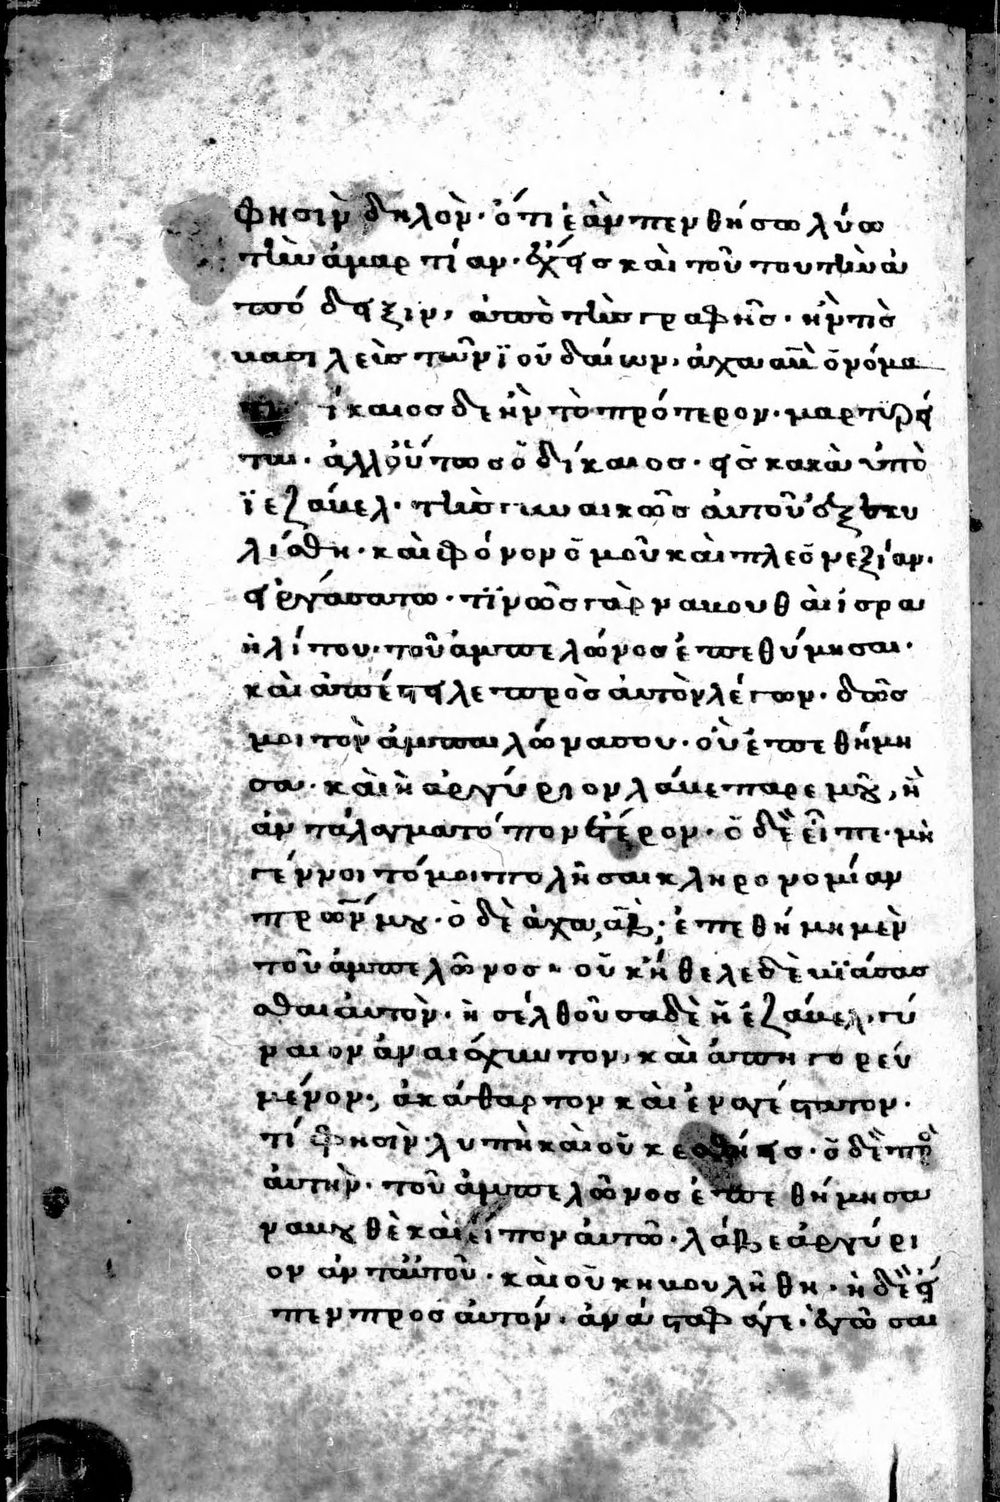 φησὶν δηλὸν· ὅτι ἐὰν πενθήσω λύω
τὴν ἁμαρτίαν· ἔχεις καὶ τοῦ του τὴν ἀ
πόδειξιν, ἀπὸ τῆς γραφῆς· ἦν τίς
βασιλεὺς τῶν ϊουδαίων, ἀχαὰβ ὀνόμα
ίκαιος δὲ ἦν τὸ πρότερον· μαρτυρεί
ται· ἀλλ' οὕπως ὁ δίκαιος· εἰς κακὰ ὑπὸ
ϊεζάβελ· τῆς γυναικὸς αὐτοῦ ἐξεκυ
λίσθη· καὶ φόνον ὁμοῦ καὶ πλεονεξίαν·
εἰργάσατω· τϊνὸς γὰρ ναβουθαὶ ἰσρα
ηλίτου· τοῦ ἀμπελώνος ἐπεθύμησαι·
καὶ ἀπέστειλε πρὸς αὐτὸν λέγων· δὸς
μοι τὸν ἀμπαιλώνα σου· οὗ ἐπεθήμη
σα· καὶ ἢ ἀργύριον λάβε παρ εμοῦ, ἢ
ἀντάλαγμα τόπον ἕτερον· ὁ δὲ εἶπε· μὴ
γέννοιτό μοι πολῆσαι κληρονομίαν
πρσ̅ν μου· ὁ δὲ ἀχαάβ· ἐπεθήμη μὲν
τοῦ ἀμπελῶνος· οὐκ ἤθελε δὲ βϊάσασ
σθαι αὐτὸν· ἠσελθοῦσα δὲ ἡ ἐζάβελ· γύ
ναιον ἀναισχυντον, καὶ ἀπηγορευ
μένον, ἀκάθαρτον καὶ ἐναγέστατον·
τί φησὶν· λυπῆ καὶ οὐκ εσθίεις· ὁ δὲ πρὸς
αὐτὴν· τοῦ ἀμπελῶνος ἐπεθήμησα
ναβουθὲ καὶ εἶπον αὐτῶ· λάβε ἀργύρι
ον ἀντ αὐτοῦ· καὶ οὐκ ηβουλήθη· ἡ δὲ εἶ
πεν προς αὐτόν· ἀνάσταφάγε· ἐγὼ σαι